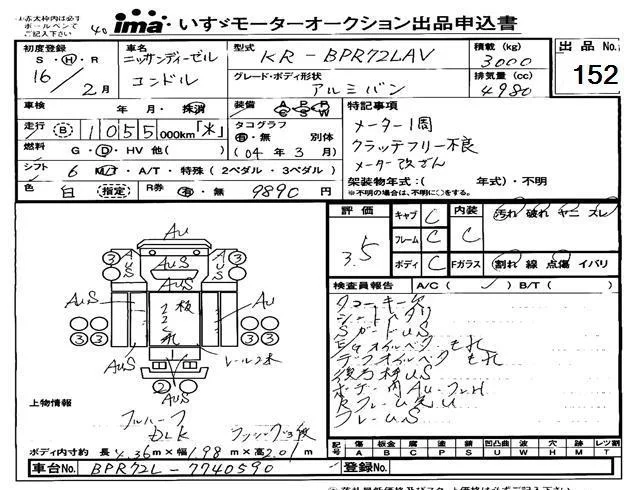 赤太枠内は必ず
ボールペンで
ご記入下さい
40
ima いすゞモーターオークション出品申込書
初度登録 S・H・R 16年 2月
車名 ニッサンディーゼル コンドル
型式 KR-BPR72LAV
グレード・ボディ形状 アルミバン
積載(kg) 3000
排気量(cc) 4980
出品No. 152
車検 年 月・抹消
装備 A C P S P W
走行 B 1055 000km「 」
タコグラフ 有・無 別体
(04年3月)
燃料 G・D・HV 他( )
シフト 6 M/T・A/T・特殊(2ペダル・3ペダル)
色 白 (指定) R券 有・無 9890円
特記事項
メーター1周
クラッチフリー不良
メーター改ざん
架装物年式:( 年式)・不明
※不明の場合は、不明に○をする。
評価 3.5
キャブ C 内装 C 汚れ 破れ ヤニ スレ
フレーム C
ボディ C Fガラス 割れ 線 点傷 イバリ
検査員報告 A/C( ) B/T( )
シートヘタリ
SガードUS
Egオイルベタ モれ
デフオイルベタ モれ
ボデー内AU
フレームUS
AU
AUS
③ ③ AUS AUS AUS ③ ③
AUS AU
③ ③ ③ ③
AUS レール2本
②
AUS
上物情報
フルハーフ
DLK
ボディ内寸約 長4.36m×幅1.98m×高2.01m
記号 傷 板金 腐 塗 錆 凹凸曲 波 穴 無 レツ割
A B C P S U W H M T
車台No. BPR72L-7740590
登録No.